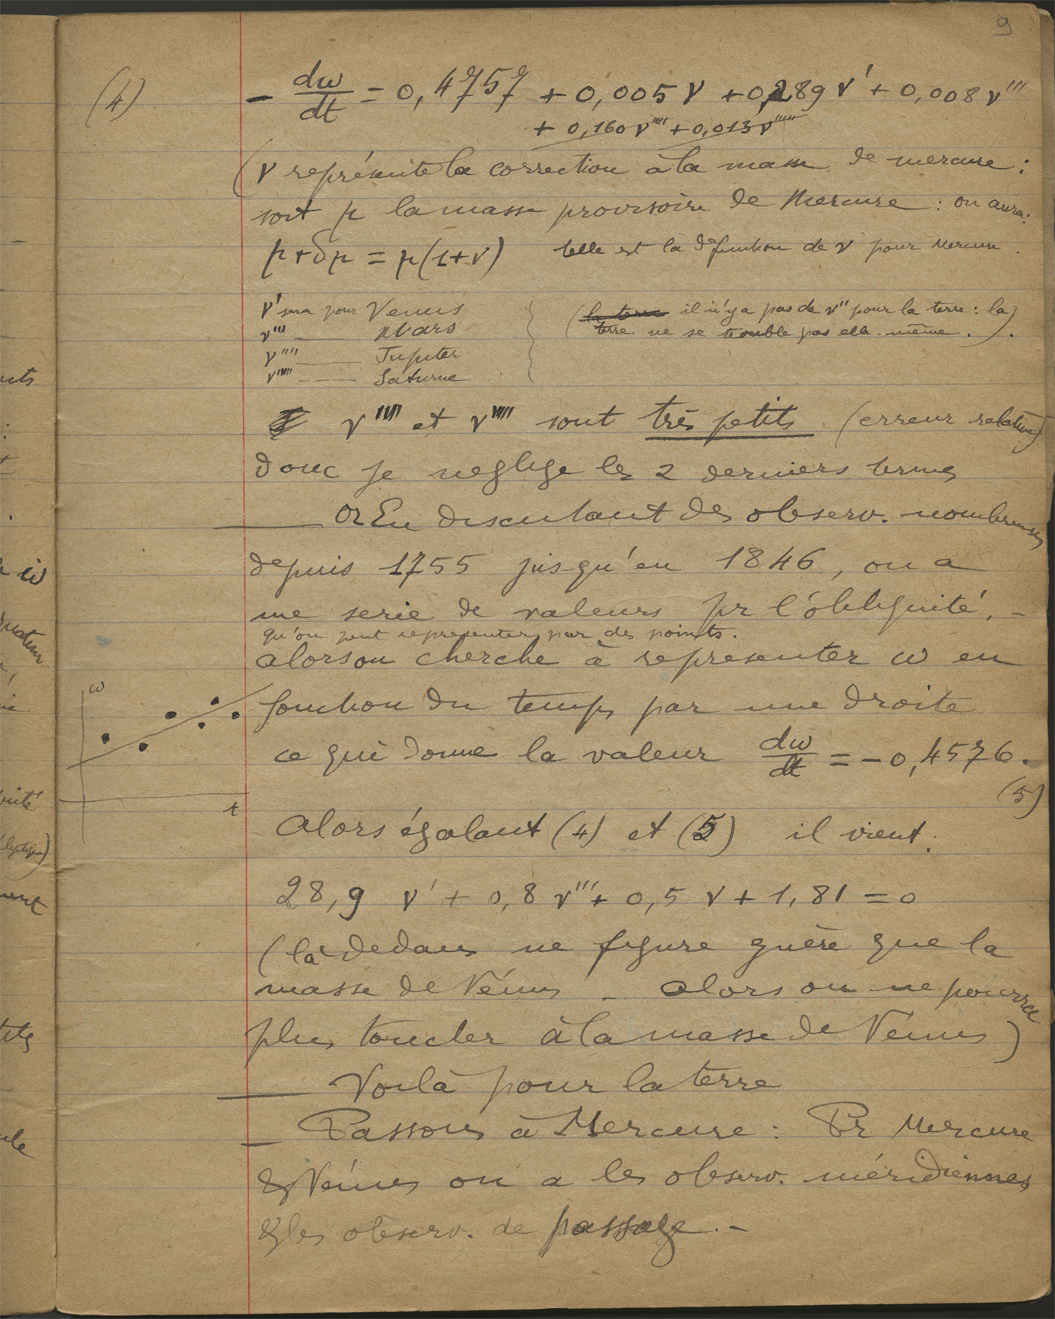 9
(4) - dω/dt = 0,4757 + 0,005 ν + 0,289 ν' + 0,008 ν'''
+ 0,160 ν'''' + 0,013 ν'''''
(ν représente la correction à la masse de mercure :
soit μ la masse provisoire de Mercure : on aura :
μ + δμ = μ(1+ν) telle est la définition de ν pour Mercure
ν' sera pour Venus
ν''' — Mars
ν'''' — Jupiter
ν''''' — Saturne
(la terre il n'y a pas de ν'' pour la terre : la
terre ne se trouble pas elle-même.).
ν'''' et ν''''' sont très petits (erreur relative)
donc je neglige les 2 derniers termes
— Or En discutant des observ. nombreuses
depuis 1755 jusqu'en 1846, on a
une serie de valeurs pr l'obliquité. -
qu'on peut representer par des points.
alors on cherche à representer ω en
fonction du temps par une droite
ce qui donne la valeur dω/dt = - 0,4576.
(5)
ω
t
Alors égalant (4) et (5) il vient :
28,9 ν' + 0,8 ν''' + 0,5 ν + 1,81 = 0
(là dedans ne figure guère que la
masse de Vénus - alors on ne pourra
plus toucher à la masse de Vénus)
— Voilà pour la terre
- Passons à Mercure : Pr Mercure
& Vénus on a les observ. méridiennes
& les observ. de passage. -